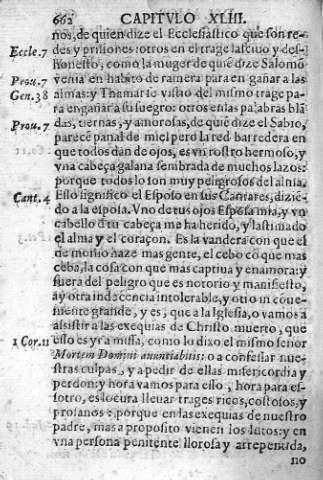 662 CAPITVLO XLIII.
nos, de quien dize el Ecclesiastico que son re-
Eccle.7 des y prisiones: otros en el trage lasciuo y des-
honesto, como la muger de quiẽ dize Salomõ
Prou.7 venia en habito de ramera para engañar a las
Gen.38 almas: y Thamar se vistio del mismo trage pa-
ra engañar a su suegro: otros en las palabras blã
Prou.7 das, tiernas, y amorosas, de quiẽ dize el Sabio,
parece panal de miel pero la red barredera en
que todos dan de ojos, es vn rostro hermoso, y
vna cabeça galana sembrada de muchos lazos:
porque todos lo son muy peligrosos del alma.
Cant.4 Esso significo el Esposo en sus Cantares, diziẽ-
do a la esposa. Vno de tus ojos Esposa mia, y vn
cabello d̃ tu cabeça me ha herido, y lastimado
el alma y el coraçon. Es la vandera con que el
demonio haze mas gente, el cebo cõ que mas
ceba, la cosa con que mas captiua y enamora: y
fuera del peligro que es notorio y manifiesto,
ay otra indecencia intolerable, y otro inconue-
niente grande, y es, que a la Iglesia, o vamos a
assistir a las exequias de Christo muerto, que
1 Cor.11 esso es yr a missa, como lo dixo el mismo señor
Mortem Domini anuntiabitis: o a confessar nue-
stras culpas, y a pedir de ellas misericordia y
perdon: y hora vamos para esso, hora para es-
sotro, es locura lleuar trages ricos, costosos, y
profanos: porque en las exequias de nuestro
padre, mas a proposito vienen los lutos: y en
vna persona penitente llorosa y arrepentida,
no